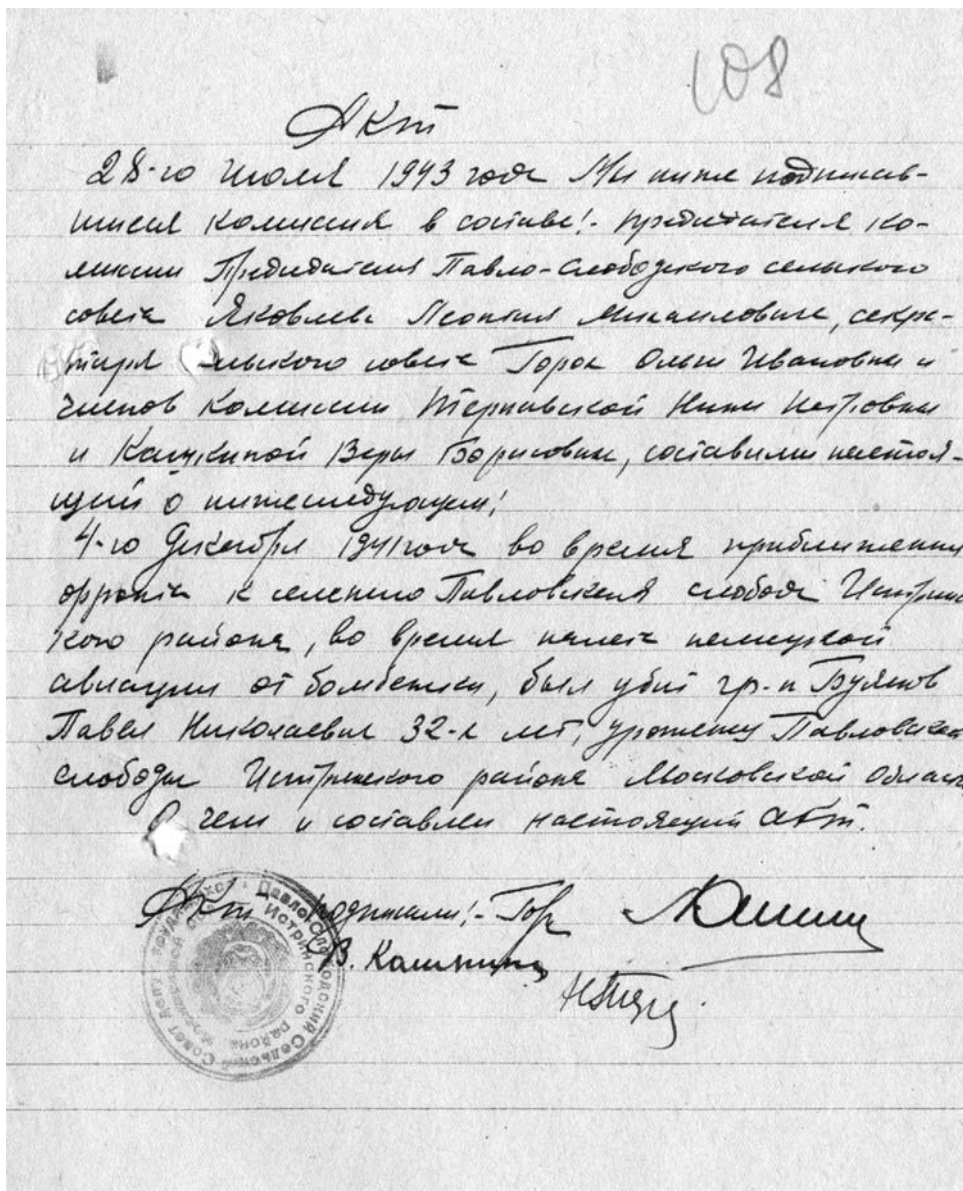 108
Акт
28-го июля 1943 года Мы ниже подписав-
шиеся комиссия в составе:- председателя ко-
миссии Председателя Павло-Слободского сельского
совета Яковлева Леонтия Михайловича, секре-
таря сельского совета Горох Ольги Ивановны и
членов комиссии Нины Петровны
и Веры Борисовны, составили настоя-
щий о нижеследующем:
4-го Декабря 1941 года во время приближения
фронта к селению Павловская слобода Истринс
кого района, во время налета немецкой
авиации от бомбежки, был убит гр-н Буянов
Павел Николаевич 32-х лет, уроженец Павловская
слобода Истринского района Московской Области
О чем и составлен настоящий акт.
Акт подписали:- Гор
В.
Павло-Слободский Сельский Совет Истринского района